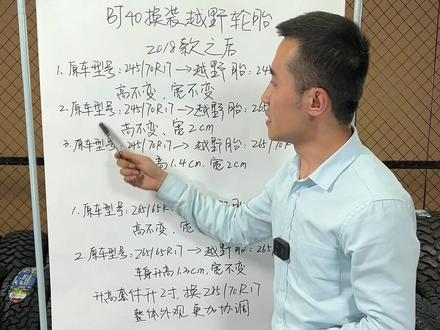 BJ40换装越野轮胎
2018款之后
1. 原车型号:245/70R17→越野胎:245
高不变, 宽不变
2. 原车型号:245/70R17→越野胎:265
高不变, 宽2cm
3. 原车型号:245/70R17→越野胎:265/70R
高1.4cm. 宽2cm
1. 原车型号:265/65R
高不变,
2. 原车型号:265/65R17→越野胎:265
车身升高1.3cm, 宽不变
升高套件升2寸, 换285/70R17
整体外观更加协调